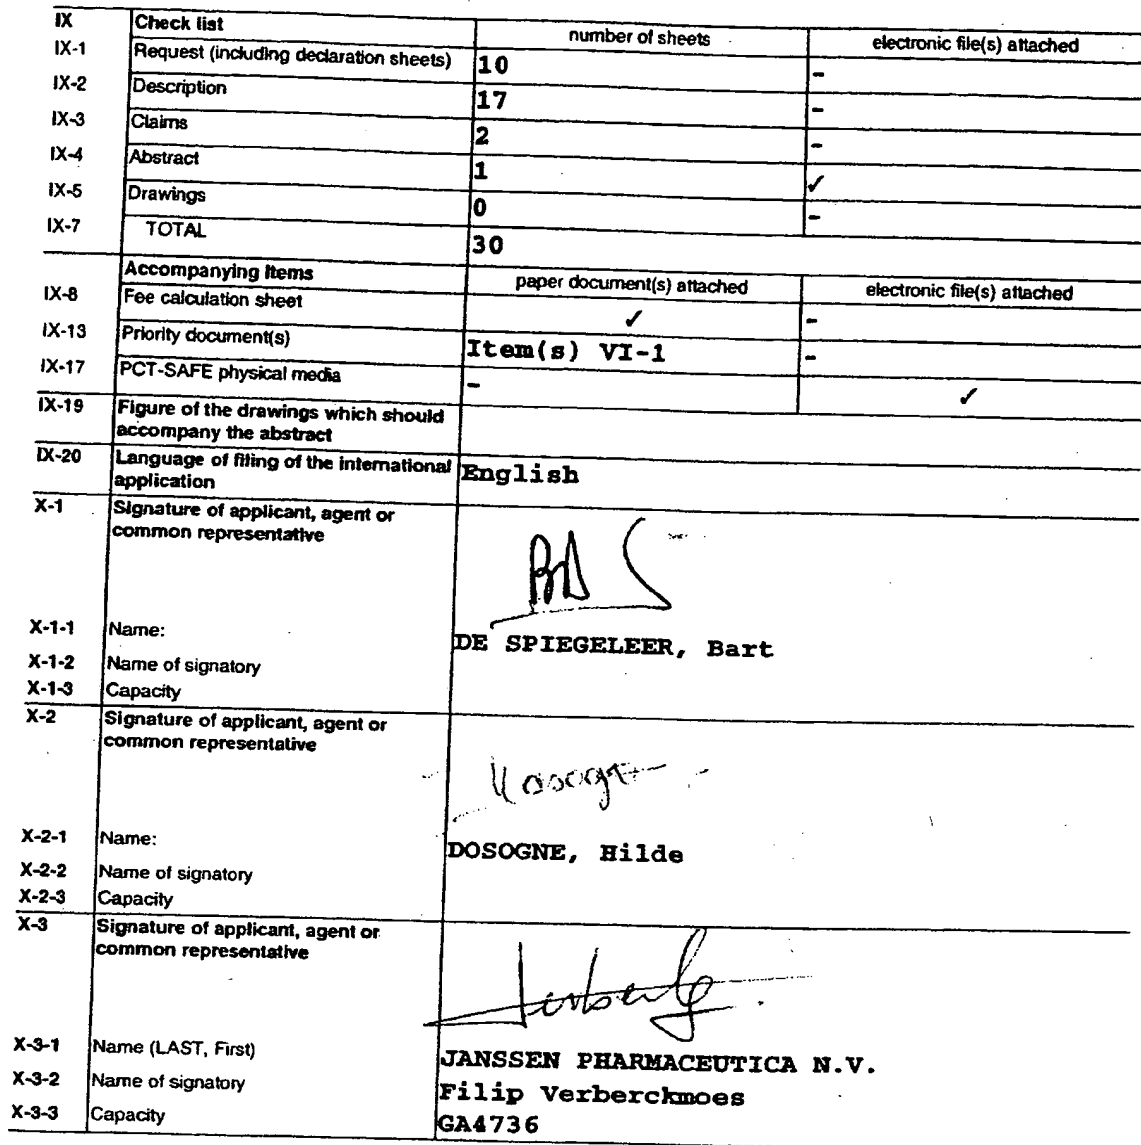 IX Check list number of sheets electronic file(s) attached
IX-1 Request (including declaration sheets) 10 -
IX-2 Description 17 -
IX-3 Claims 2 -
IX-4 Abstract 1 ✓
IX-5 Drawings 0 -
IX-7 TOTAL 30
Accompanying Items paper document(s) attached electronic file(s) attached
IX-8 Fee calculation sheet ✓ -
IX-13 Priority document(s) Item(s) VI-1 -
IX-17 PCT-SAFE physical media - ✓
IX-19 Figure of the drawings which should
accompany the abstract
IX-20 Language of filing of the international
application English
X-1 Signature of applicant, agent or
common representative
X-1-1 Name: DE SPIEGELEER, Bart
X-1-2 Name of signatory
X-1-3 Capacity
X-2 Signature of applicant, agent or
common representative
X-2-1 Name: DOSOGNE, Hilde
X-2-2 Name of signatory
X-2-3 Capacity
X-3 Signature of applicant, agent or
common representative
X-3-1 Name (LAST, First) JANSSEN PHARMACEUTICA N.V.
X-3-2 Name of signatory Filip Verberckmoes
X-3-3 Capacity GA4736